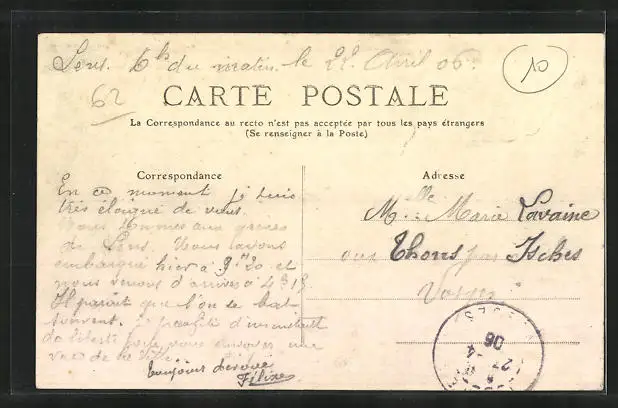 Lens. 6h du matin. le 22 Avril 06.
10
62
CARTE POSTALE
La Correspondance au recto n'est pas acceptée par tous les pays étrangers
(Se renseigner à la Poste)
Correspondance
En ce moment je suis
très éloigné de vous.
Nous sommes aux grèves
de Lens. Nous avons
embarqué hier à 9h20 et
nous venons d'arriver à 4h15
Il parait que l'on se bat
souvent. je profite d'un instant
de liberté pour vous envoyer une
vue de la ville.
Toujours dévoué
Adresse
Melle Marie Lavaine
aux Thons par Isches
Vosges
27 -4
06